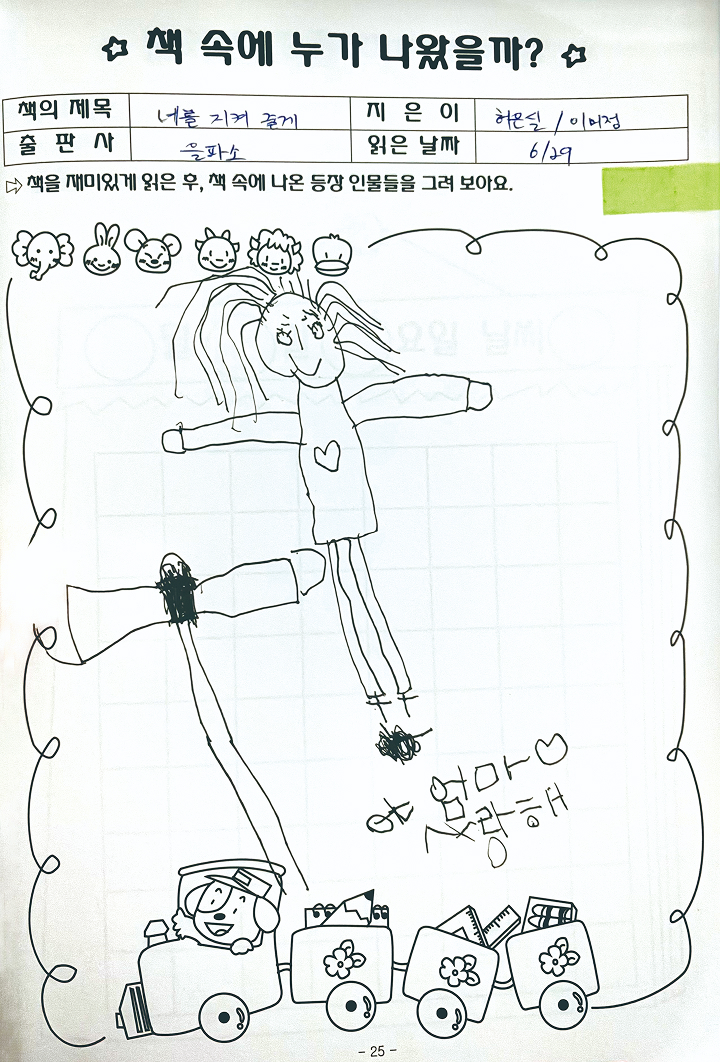 책 속에 누가 나왔을까?
책의 제목 너를 지켜 줄게 지은이 허은실 / 이미정
출판사 을파소 읽은 날짜 6/29
책을 재미있게 읽은 후, 책 속에 나온 등장 인물들을 그려 보아요.
엄마♡
사랑해
- 25 -